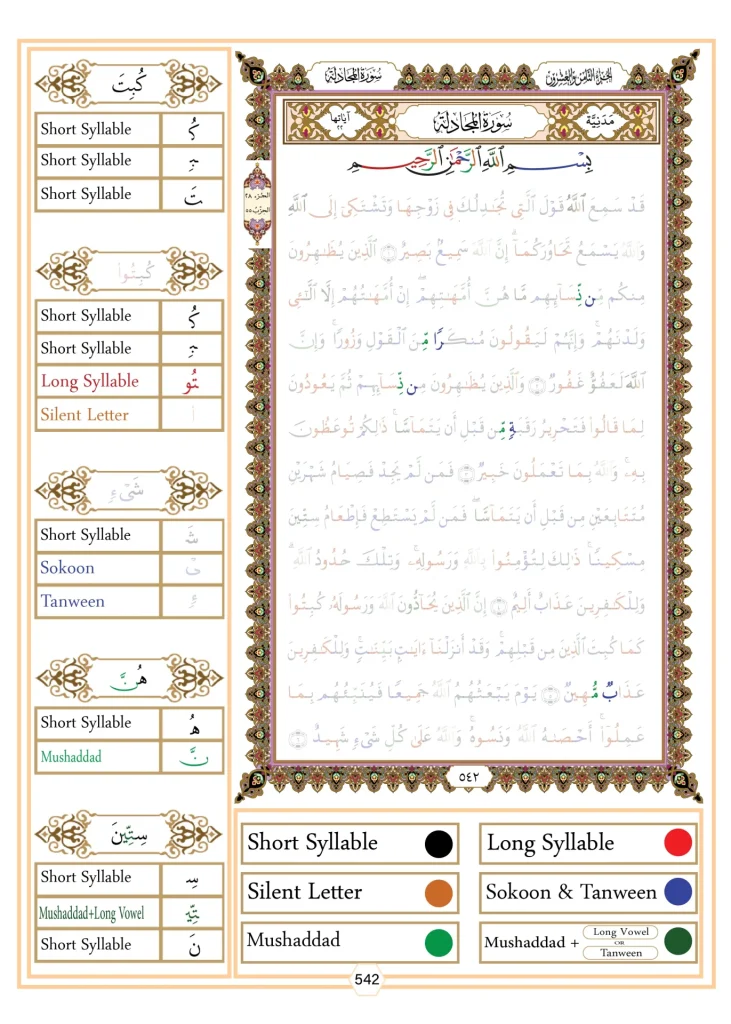 كُبِتَ
Short Syllable كُ
Short Syllable بِ
Short Syllable تَ
كُبِتُوا۟
Short Syllable كُ
Short Syllable بِ
Long Syllable تُو
Silent Letter ا
شَىْءٍ
Short Syllable شَ
Sokoon ىْ
Tanween ءٍ
هُنَّ
Short Syllable هُ
Mushaddad نَّ
سِتِّينَ
Short Syllable سِ
Mushaddad+Long Vowel تِّي
Short Syllable نَ
سُورَةُ المُجَادلَة
الجُزءُ الثَّامِنُ وَالعِشرُونَ
آيَاتُهَا ٢٢
سُورَةُ المُجَادلَة
مَدَنِيَّة
بِسْمِ ٱللَّهِ ٱلرَّحْمَٰنِ ٱلرَّحِيمِ
الجزء ٢٨
الحزب ٥٥
قَدْ سَمِعَ ٱللَّهُ قَوْلَ ٱلَّتِى تُجَٰدِلُكَ فِى زَوْجِهَا وَتَشْتَكِىٓ إِلَى ٱللَّهِ
وَٱللَّهُ يَسْمَعُ تَحَاوُرَكُمَآ ۚ إِنَّ ٱللَّهَ سَمِيعٌۢ بَصِيرٌ ۝١ ٱلَّذِينَ يُظَٰهِرُونَ
مِنكُم مِّن نِّسَآئِهِم مَّا هُنَّ أُمَّهَٰتِهِمْ ۖ إِنْ أُمَّهَٰتُهُمْ إِلَّا ٱلَّٰٓـِٔى
وَلَدْنَهُمْ ۚ وَإِنَّهُمْ لَيَقُولُونَ مُنكَرًا مِّنَ ٱلْقَوْلِ وَزُورًا ۚ وَإِنَّ
ٱللَّهَ لَعَفُوٌّ غَفُورٌ ۝٢ وَٱلَّذِينَ يُظَٰهِرُونَ مِن نِّسَآئِهِمْ ثُمَّ يَعُودُونَ
لِمَا قَالُوا۟ فَتَحْرِيرُ رَقَبَةٍ مِّن قَبْلِ أَن يَتَمَآسَّا ۚ ذَٰلِكُمْ تُوعَظُونَ
بِهِۦ ۚ وَٱللَّهُ بِمَا تَعْمَلُونَ خَبِيرٌ ۝٣ فَمَن لَّمْ يَجِدْ فَصِيَامُ شَهْرَيْنِ
مُتَتَابِعَيْنِ مِن قَبْلِ أَن يَتَمَآسَّا ۖ فَمَن لَّمْ يَسْتَطِعْ فَإِطْعَامُ سِتِّينَ
مِسْكِينًا ۚ ذَٰلِكَ لِتُؤْمِنُوا۟ بِٱللَّهِ وَرَسُولِهِۦ ۚ وَتِلْكَ حُدُودُ ٱللَّهِ ۗ
وَلِلْكَٰفِرِينَ عَذَابٌ أَلِيمٌ ۝٤ إِنَّ ٱلَّذِينَ يُحَآدُّونَ ٱللَّهَ وَرَسُولَهُۥ كُبِتُوا۟
كَمَا كُبِتَ ٱلَّذِينَ مِن قَبْلِهِمْ ۚ وَقَدْ أَنزَلْنَآ ءَايَٰتٍۭ بَيِّنَٰتٍ ۚ وَلِلْكَٰفِرِينَ
عَذَابٌ مُّهِينٌ ۝٥ يَوْمَ يَبْعَثُهُمُ ٱللَّهُ جَمِيعًا فَيُنَبِّئُهُم بِمَا
عَمِلُوٓا۟ ۚ أَحْصَىٰهُ ٱللَّهُ وَنَسُوهُ ۚ وَٱللَّهُ عَلَىٰ كُلِّ شَىْءٍ شَهِيدٌ ۝٦
٥٤٢
Short Syllable
Long Syllable
Silent Letter
Sokoon & Tanween
Mushaddad
Mushaddad + Long Vowel OR Tanween
542